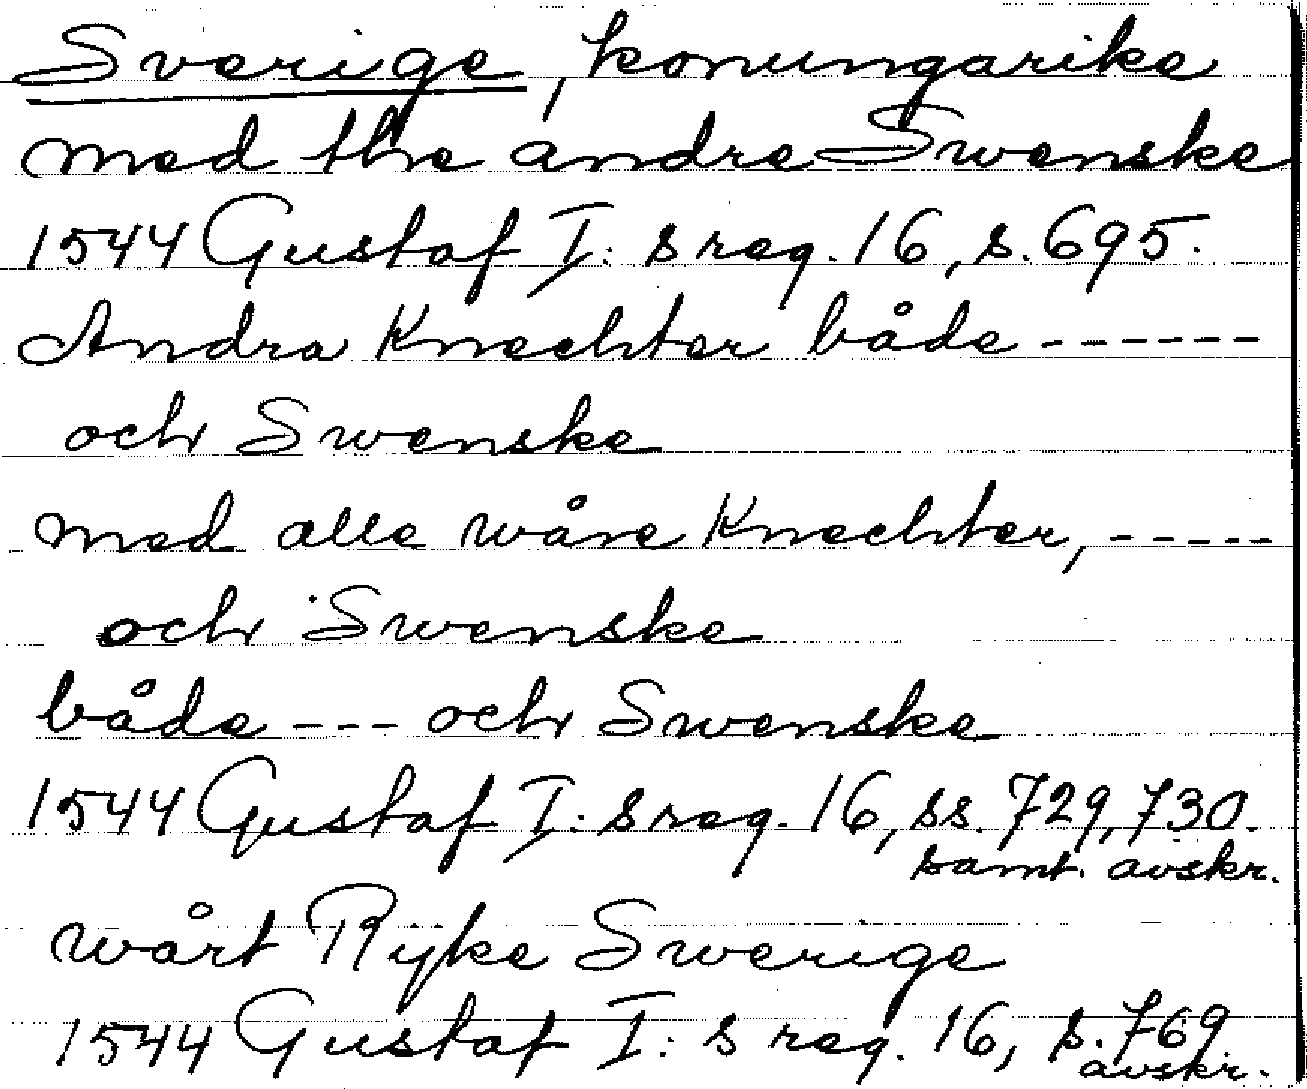 Sverige, konungarike
med the andre Swenske
1544 Gustaf I:s reg. 16, s. 695.
Andra Knechter både ------
och Swenske
med alle wåre Knechter, -----
och Swenske
både --- och Swenske
1544 Gustaf I:s reg. 16, ss. 729, 730.
samt. avskr.
wårt Rijke Swerige
1544 Gustaf I:s reg. 16, s. 769
avskr.